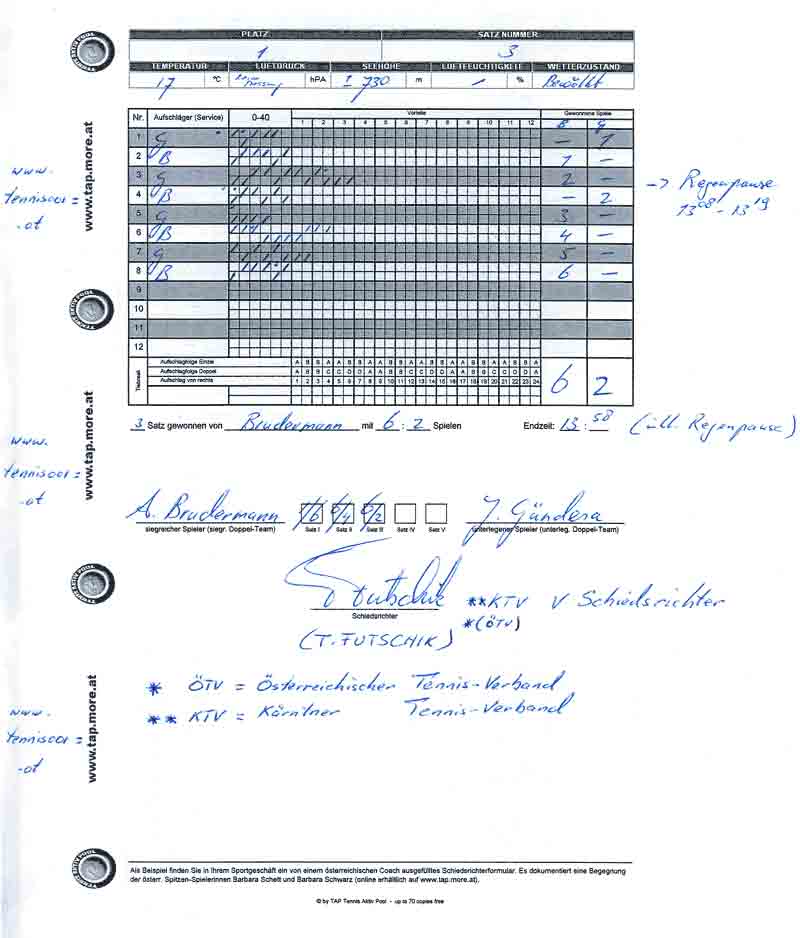 PLATZ SATZ NUMMER
1 3
TEMPERATUR LUFTDRUCK SEEHÖHE LUFTFEUCHTIGKEITE WETTERZUSTAND
17 °C hPA ± 730 m - % Bewölkt
Nr. Aufschläger (Service) 0-40 Vorteile Gewonnene Spiele
1 2 3 4 5 6 7 8 9 10 11 12 B G
1 G - 1
2 B 1 -
3 G 2 -
4 B - 2
5 G 3 -
6 B 4 -
7 G 5 -
8 B 6 -
9
10
11
12
-> Regenpause
13 08 - 13 19
Tiebreak
Aufschlagfolge Einzel A B B A A B B A A B B A A B B A A B B A A B B A
Aufschlagfolge Doppel A B B C C D D A A B B C C D D A A B B C C D D A
Aufschlag von rechts 1 2 3 4 5 6 7 8 9 10 11 12 13 14 15 16 17 18 19 20 21 22 23 24
6 2
3 Satz gewonnen von Brudermann mit 6 : 2 Spielen Endzeit: 13 : 58 (inkl. Regenpause)
A. Brudermann 1/6 6/4 6/2 J. Gündera
siegreicher Spieler (siegr. Doppel-Team) Satz I Satz II Satz III Satz IV Satz V unterlegener Spieler (unterleg. Doppel-Team)
Futschik **KTV V Schiedsrichter
Schiedsrichter *(ÖTV)
(T. FUTSCHIK)
* ÖTV = Österreichischer Tennis-Verband
** KTV = Kärntner Tennis-Verband
www.tap.more.at
www.tap.more.at
www.tap.more.at
www.
tenniscoa =
.at
www.
tenniscoa =
.at
www.
tenniscoa =
.at
TENNIS AKTIV POOL
TENNIS AKTIV POOL
TENNIS AKTIV POOL
TENNIS AKTIV POOL
Als Beispiel finden Sie in Ihrem Sportgeschäft ein von einem österreichischen Coach ausgefülltes Schiedsrichterformular. Es dokumentiert eine Begegnung
der österr. Spitzen-Spielerinnen Barbara Schett und Barbara Schwarz (online erhältlich auf www.tap.more.at).
© by TAP Tennis Aktiv Pool - up to 70 copies free